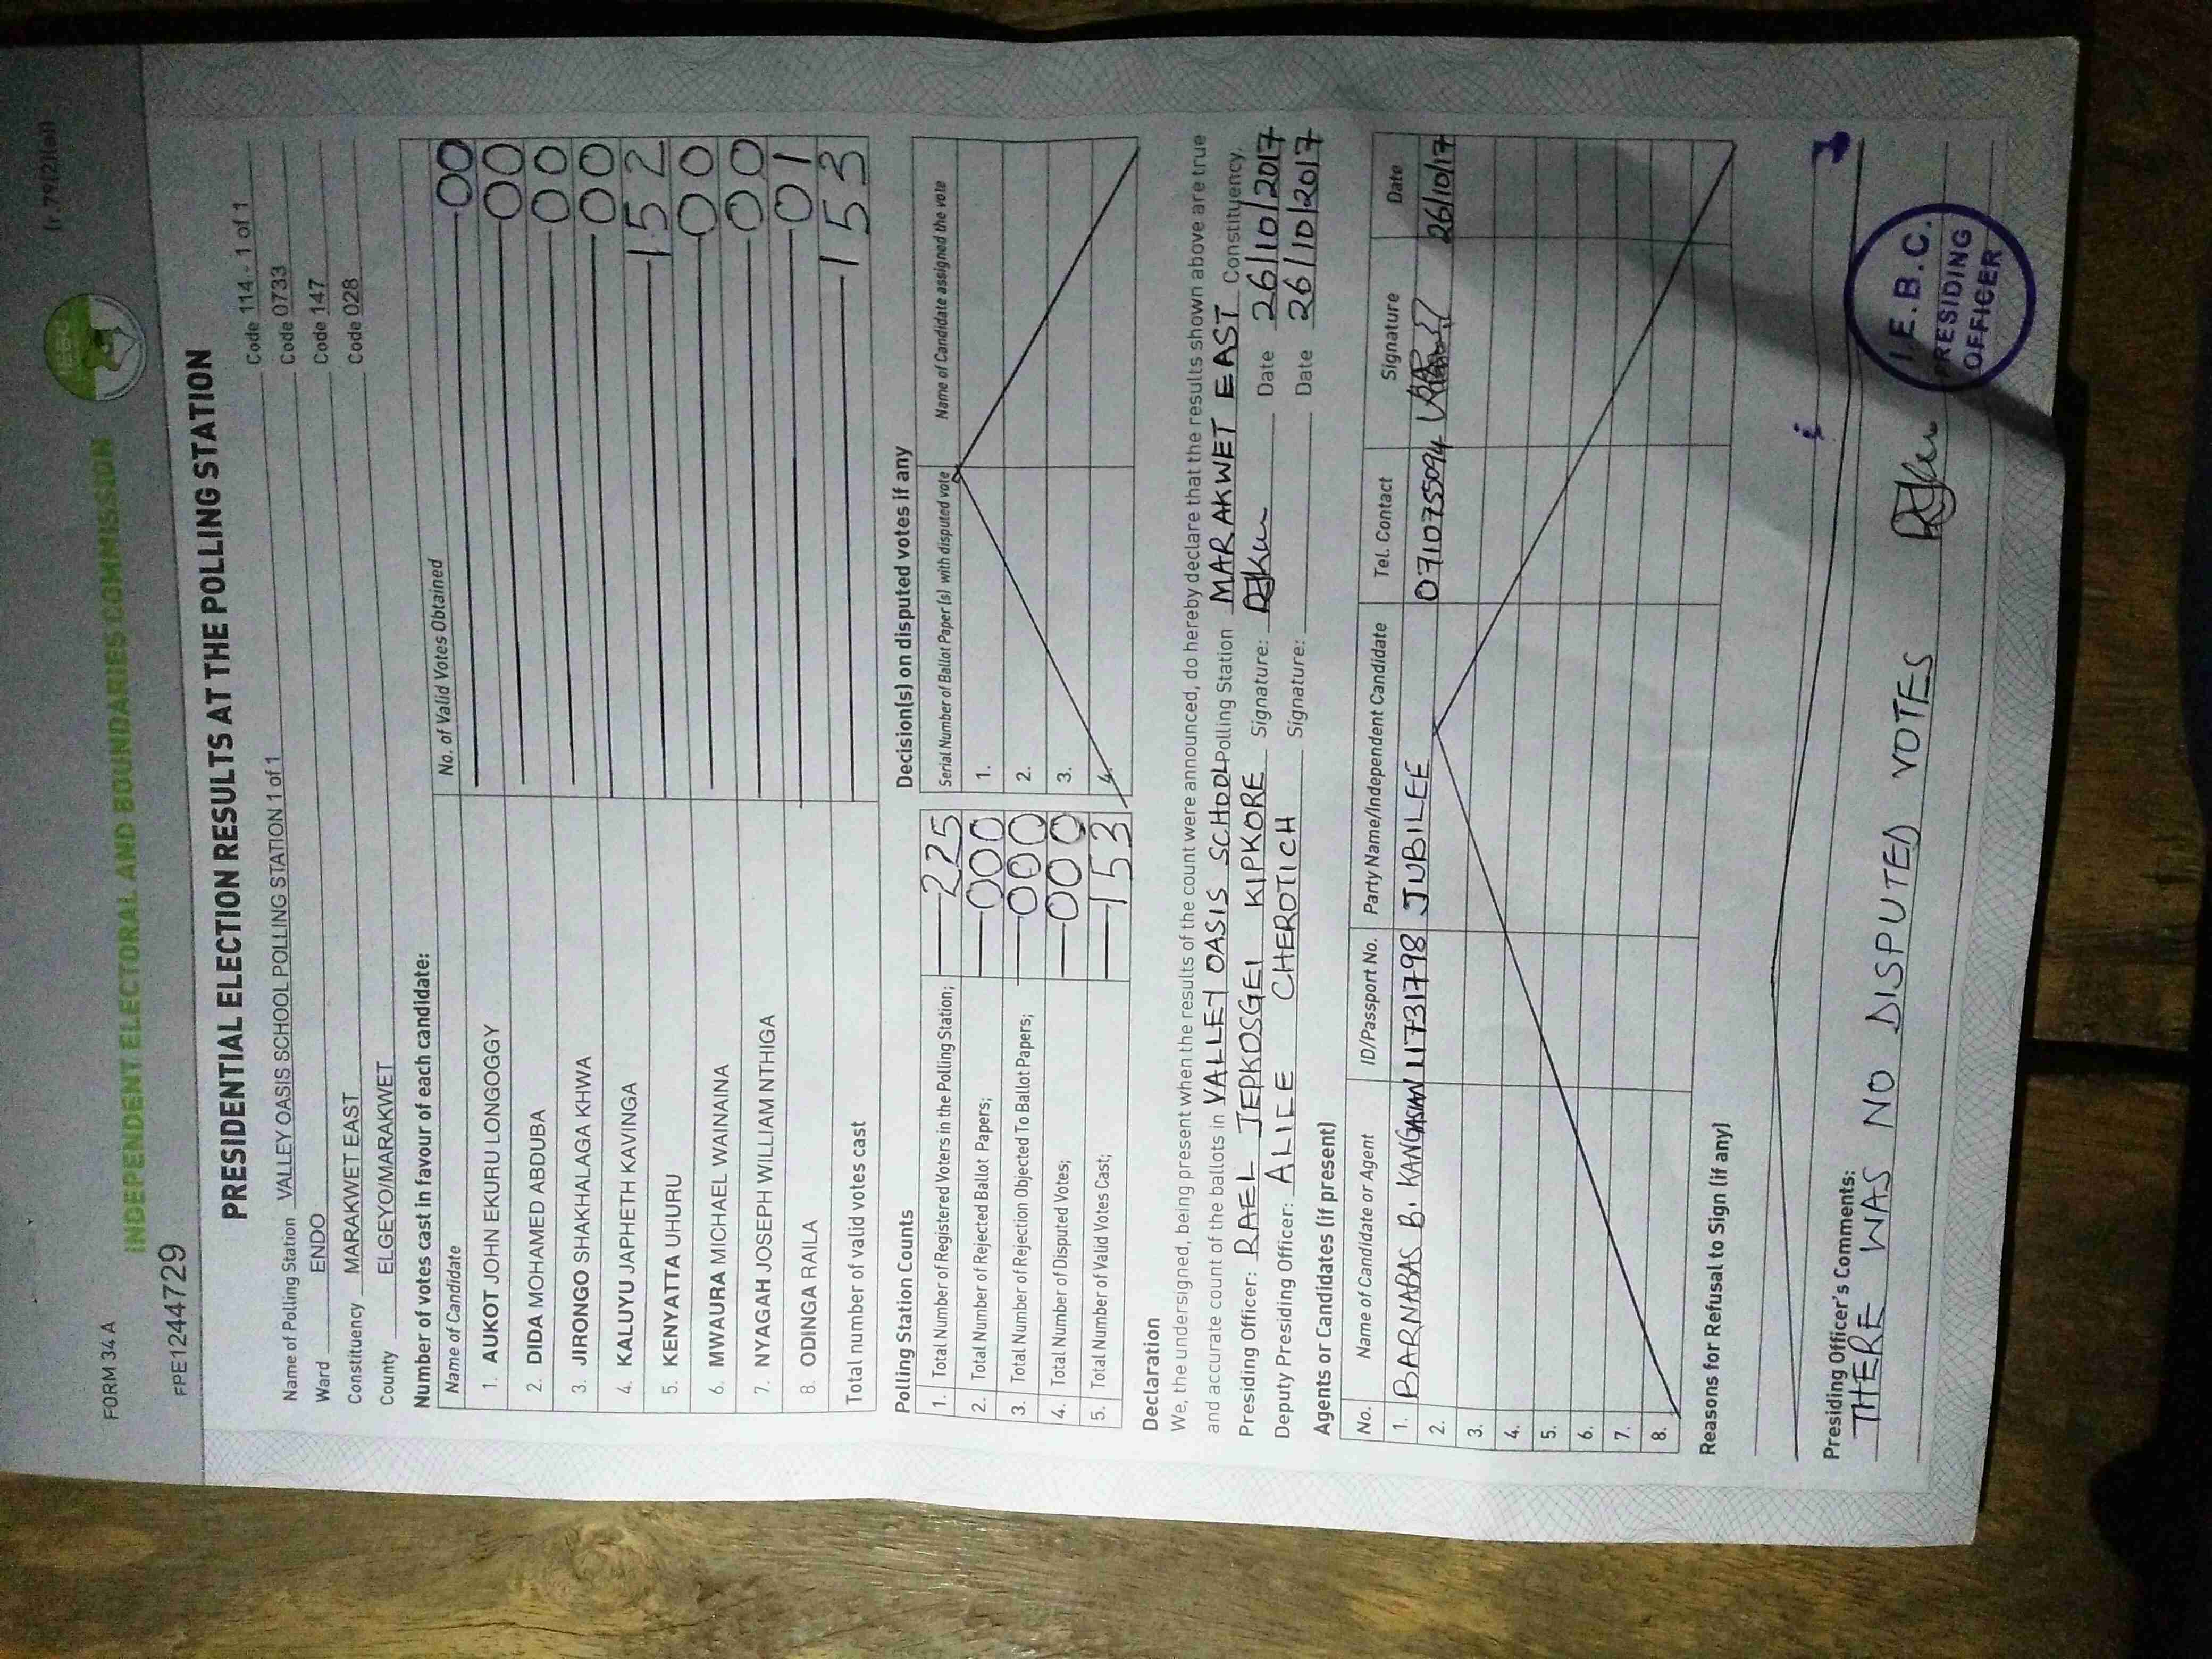 (r.79(2)(a))
FORM 34 A
INDEPENDENT ELECTORAL AND BOUNDARIES COMMISSION
IEBC
FPE1244729
PRESIDENTIAL ELECTION RESULTS AT THE POLLING STATION
Name of Polling Station VALLEY OASIS SCHOOL POLLING STATION 1 of 1 Code 114 - 1 of 1
Ward ENDO Code 0733
Constituency MARAKWET EAST Code 147
County ELGEYO/MARAKWET Code 028
Number of votes cast in favour of each candidate:
Name of Candidate No. of Valid Votes Obtained
1. AUKOT JOHN EKURU LONGOGGY 00
2. DIDA MOHAMED ABDUBA 00
3. JIRONGO SHAKHALAGA KHWA 00
4. KALUYU JAPHETH KAVINGA 00
5. KENYATTA UHURU 152
6. MWAURA MICHAEL WAINAINA 00
7. NYAGAH JOSEPH WILLIAM NTHIGA 00
8. ODINGA RAILA 01
Total number of valid votes cast 153
Polling Station Counts
1. Total Number of Registered Voters in the Polling Station; 225
2. Total Number of Rejected Ballot Papers; 000
3. Total Number of Rejection Objected To Ballot Papers; 000
4. Total Number of Disputed Votes; 000
5. Total Number of Valid Votes Cast; 153
Decision(s) on disputed votes if any
Serial Number of Ballot Paper (s) with disputed vote Name of Candidate assigned the vote
1.
2.
3.
4.
Declaration
We, the undersigned, being present when the results of the count were announced, do hereby declare that the results shown above are true
and accurate count of the ballots in VALLEY OASIS SCHOOL Polling Station MARAKWET EAST Constituency.
Presiding Officer: RAEL JEPKOSGEI KIPKORE Signature: Date 26/10/2017
Deputy Presiding Officer: ALICE CHEROTICH Signature: Date 26/10/2017
Agents or Candidates (if present)
No. Name of Candidate or Agent ID/Passport No. Party Name/Independent Candidate Tel. Contact Signature Date
1. BARNABAS B. KANGASIAN 11731798 JUBILEE 0710755094 26/10/17
2.
3.
4.
5.
6.
7.
8.
Reasons for Refusal to Sign (if any)
Presiding Officer's Comments:
THERE WAS NO DISPUTED VOTES
I.E.B.C.
PRESIDING
OFFICER